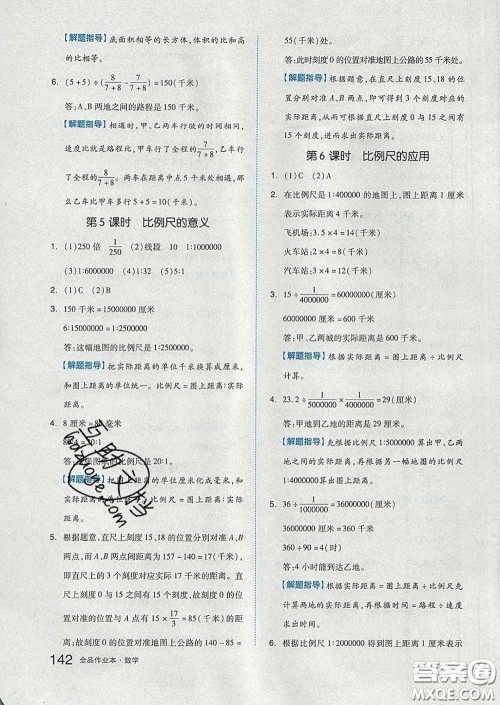 【解题指导】 底面积相等的长方体,体积的比和高
的比相等。
6. (5+5)÷(8/(7+8)-7/(7+8))=150(千米)
答:A、B两地之间的路程是150千米。
【解题指导】 相遇时,甲、乙两车行驶的时间相同,
速度比就是路程比,甲车行了全程的7/(7+8),乙车行
了全程的8/(7+8)。两车在距离中点5千米处相遇,那
么乙车比甲车多行了(5+5)千米。
第5课时 比例尺的意义
1. (1)250倍 1/250 (2)线段 10 1:1000000
(3)1:6000000 (4)1:35000000 (5)5:1
2. (1)C (2)B
3. 150千米=15000000厘米
6:15000000=1:2500000
答:这幅地图的比例尺是1:2500000。
【解题指导】 把实际距离的单位千米换算成厘米,
和图上距离的单位统一。比例尺=图上距离:实际
距离。
4. 8厘米=80毫米
80:4=20:1
答:这张图纸的比例尺是20:1。
【解题指导】 把图上距离的单位厘米化成毫米,和
实际距离的单位统一。比例尺=图上距离:实际
距离。
5. 根据题意,直尺上刻度15、18的位置分别对准A、B
两点,而A、B两点间距离为157-140=17(千米),
即直尺上的3个刻度对应实际17千米的距离,则刻
度0的位置与点A相距15×17/3=85(千米),刻度0的
位置对准地图上公路的位置为140-85=
55(千米)处。
答:此时刻度0的位置对准地图上公路的55千米处。
【解题指导】 根据题意,在直尺上刻度15、18的位
置分别对准A、B两点,即可得到3个刻度对应的实
际距离,从而可根据直尺上刻度0与15的距离,
进而求出实际距离。
第6课时 比例尺的应用
1. (1)C (2)A
2. 在比例尺是1:400000的地图上,图上距离1厘米
表示实际距离4千米。
飞机场:3.5×4=14(千米)
火车站:2×4=8(千米)
汽车站:3×4=12(千米)
3. 15÷1/4000000=60000000(厘米)
60000000厘米=600千米
答:甲、乙两城的实际距离是600千米。
【解题指导】 根据实际距离=图上距离÷比例尺
计算。
4. 23.2÷1/5000000×1/4000000=29(厘米)
答:甲地到乙地的距离是29厘米。
【解题指导】 先根据比例尺1:5000000算出甲、乙
两地的实际距离,再根据另一幅地图的比例尺
1:4000000算出图上距离。
5. 36÷1/1000000=36000000(厘米)
36000000厘米=360千米
360÷90=4(时)
答:4小时能到达乙地。
【解题指导】 先根据实际距离=图上距离÷比例尺
计算出实际距离,再根据时间=路程÷速度计算出
时间。
6. 根据比例尺可知,地图上1厘米的距离相当于表示
142 全品作业本·数学
百时文档
答案圈
MXQE.COM